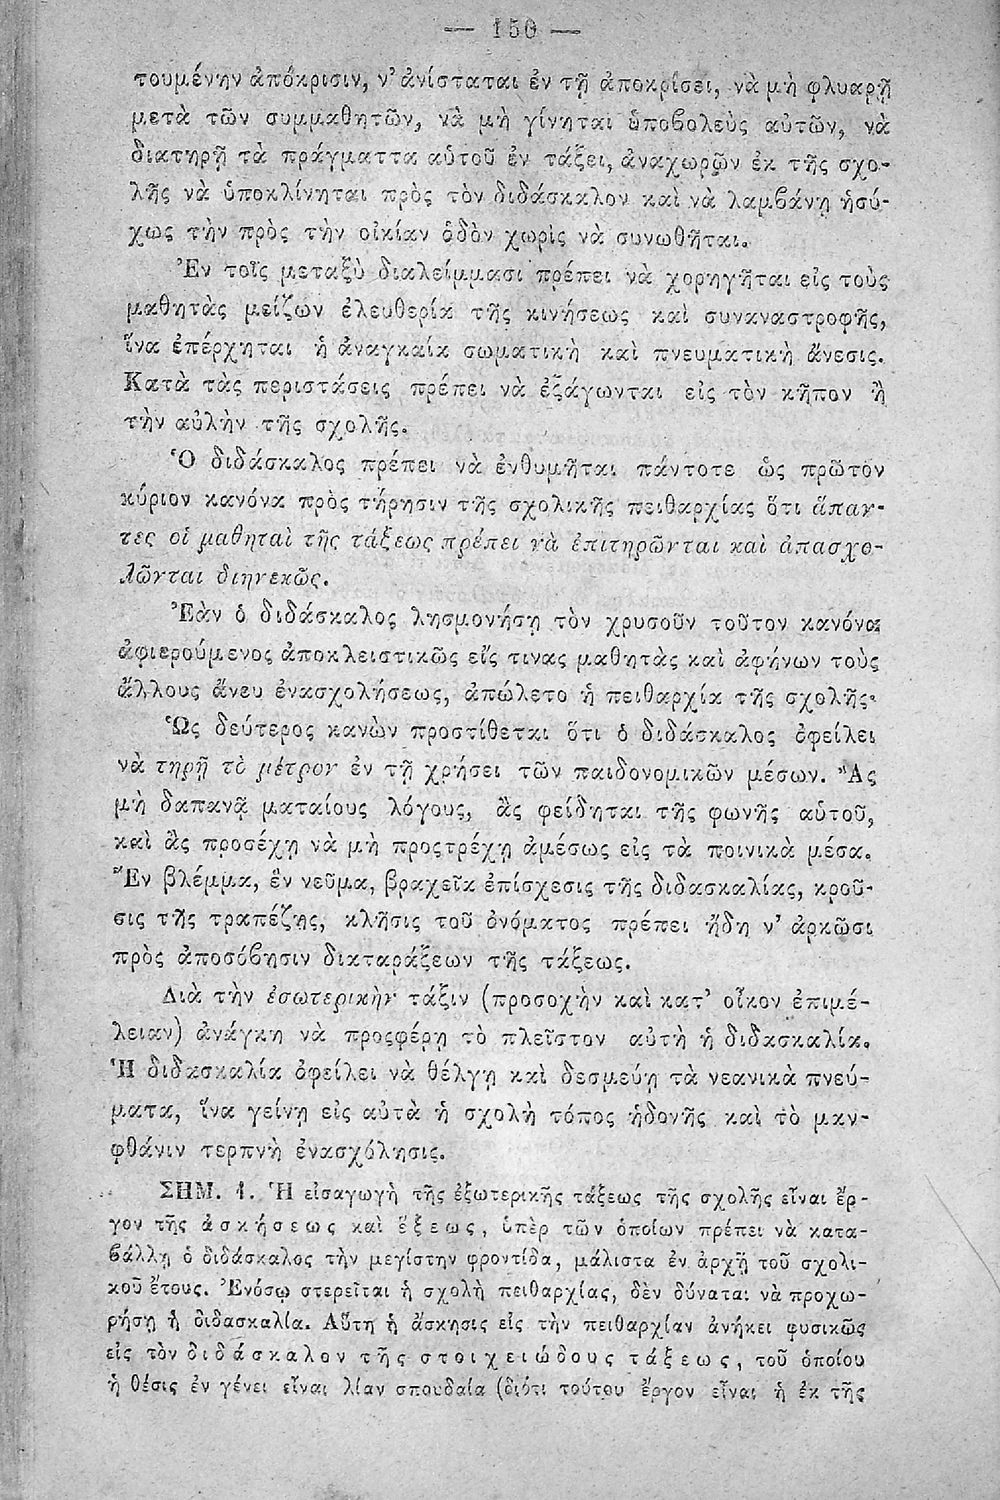 — 150 —
τουμένην ἀπόκρισιν, ν’ ἀνίσταται ἐν τῇ ἀποκρίσει, νὰ μὴ φλυαρῇ
μετὰ τῶν συμμαθητῶν, νὰ μὴ γίνηται ὑποβολεὺς αὐτῶν, νὰ
διατηρῇ τὰ πράγματτα αὑτοῦ ἐν τάξει, ἀναχωρῶν ἐκ τῆς σχο-
λῆς νὰ ὑποκλίνηται πρὸς τὸν διδάσκαλον καὶ νὰ λαμβάνῃ ἡσύ-
χως τὴν πρὸς τὴν οἰκίαν ὁδὸν χωρὶς νὰ συνωθῆται.
Ἐν τοῖς μεταξὺ διαλείμμασι πρέπει νὰ χορηγῆται εἰς τοὺς
μαθητὰς μείζων ἐλευθερία τῆς κινήσεως καὶ συναναστροφῆς,
ἵνα ἐπέρχηται ἡ ἀναγκαία σωματικὴ καὶ πνευματικὴ ἄνεσις.
Κατὰ τὰς περιστάσεις πρέπει νὰ ἐξάγωνται εἰς τὸν κῆπον ἢ
τὴν αὐλὴν τῆς σχολῆς.
Ὁ διδάσκαλος πρέπει νὰ ἐνθυμῆται πάντοτε ὡς πρῶτον
κύριον κανόνα πρὸς τήρησιν τῆς σχολικῆς πειθαρχίας ὅτι ἅπαν-
τες οἱ μαθηταὶ τῆς τάξεως πρέπει νὰ ἐπιτηρῶνται καὶ ἀπασχο-
λῶνται διηνεκῶς.
Ἐὰν ὁ διδάσκαλος λησμονήσῃ τὸν χρυσοῦν τοῦτον κανόνα
ἀφιερούμενος ἀποκλειστικῶς εἴς τινας μαθητὰς καὶ ἀφήνων τοὺς
ἄλλους ἄνευ ἐνασχολήσεως, ἀπώλετο ἡ πειθαρχία τῆς σχολῆς·
Ὡς δεύτερος κανὼν προστίθεται ὅτι ὁ διδάσκαλος ὀφείλει
νὰ τηρῇ τὸ μέτρον ἐν τῇ χρήσει τῶν παιδονομικῶν μέσων. Ἂς
μὴ δαπανᾷ ματαίους λόγους, ἂς φείδηται τῆς φωνῆς αὑτοῦ,
καὶ ἂς προσέχῃ νὰ μὴ προςτρέχῃ ἀμέσως εἰς τὰ ποινικὰ μέσα.
Ἓν βλέμμα, ἓν νεῦμα, βραχεῖα ἐπίσχεσις τῆς διδασκαλίας, κροῦ-
σις τῆς τραπέζης, κλῆσις τοῦ ὀνόματος πρέπει ἤδη ν’ ἀρκῶσι
πρὸς ἀποσόβησιν διαταράξεων τῆς τάξεως.
Διὰ τὴν ἐσωτερικὴν τάξιν (προσοχὴν καὶ κατ’ οἶκον ἐπιμέ-
λειαν) ἀνάγκη νὰ προςφέρῃ τὸ πλεῖστον αὐτὴ ἡ διδασκαλία.
Ἡ διδασκαλία ὀφείλει νὰ θέλγῃ καὶ δεσμεύῃ τὰ νεανικὰ πνεύ-
ματα, ἵνα γείνῃ εἰς αὐτὰ ἡ σχολὴ τόπος ἡδονῆς καὶ τὸ μαν-
φθάνιν τερπνὴ ἐνασχόλησις.
ΣΗΜ. 1. Ἡ εἰσαγωγὴ τῆς ἐξωτερικῆς τάξεως τῆς σχολῆς εἶναι ἔρ-
γον τῆς ἀσκήσεως καὶ ἕξεως, ὑπὲρ τῶν ὁποίων πρέπει νὰ κατα-
βάλλῃ ὁ διδάσκαλος τὴν μεγίστην φροντίδα, μάλιστα ἐν ἀρχῇ τοῦ σχολι-
κοῦ ἔτους. Ἐνόσῳ στερεῖται ἡ σχολὴ πειθαρχίας, δὲν δύναται νὰ προχω-
ρήσῃ ἡ διδασκαλία. Αὕτη ἡ ἄσκησις εἰς τὴν πειθαρχίαν ἀνήκει φυσικῶς
εἰς τὸν διδάσκαλον τῆς στοιχειώδους τάξεως, τοῦ ὁποίου
ἡ θέσις ἐν γένει εἶναι λίαν σπουδαία (διότι τούτου ἔργον εἶναι ἡ ἐκ τῆς